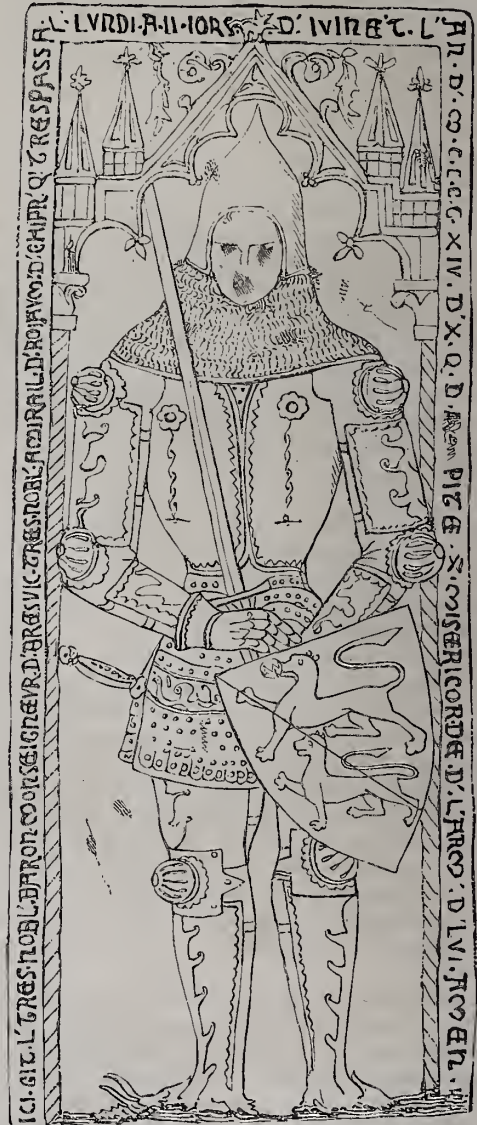 ICI·GIT·L'TRES·NOBL'·BARON·MONSEIGNEVR·D'ARESVIC·TRES·NOBL'·AMIRAIL·D'ROIAVM'·D'CHIPR'·Q'TRESPASSA
L'·LVNDI·A·II·IORS D'·IVINET·L'
AN·D'·M·C·C·C·XIV·D'·X·Q·D· PITE·S·MISERICORDE·D'L'ARM'·D'LVI·AMEN·